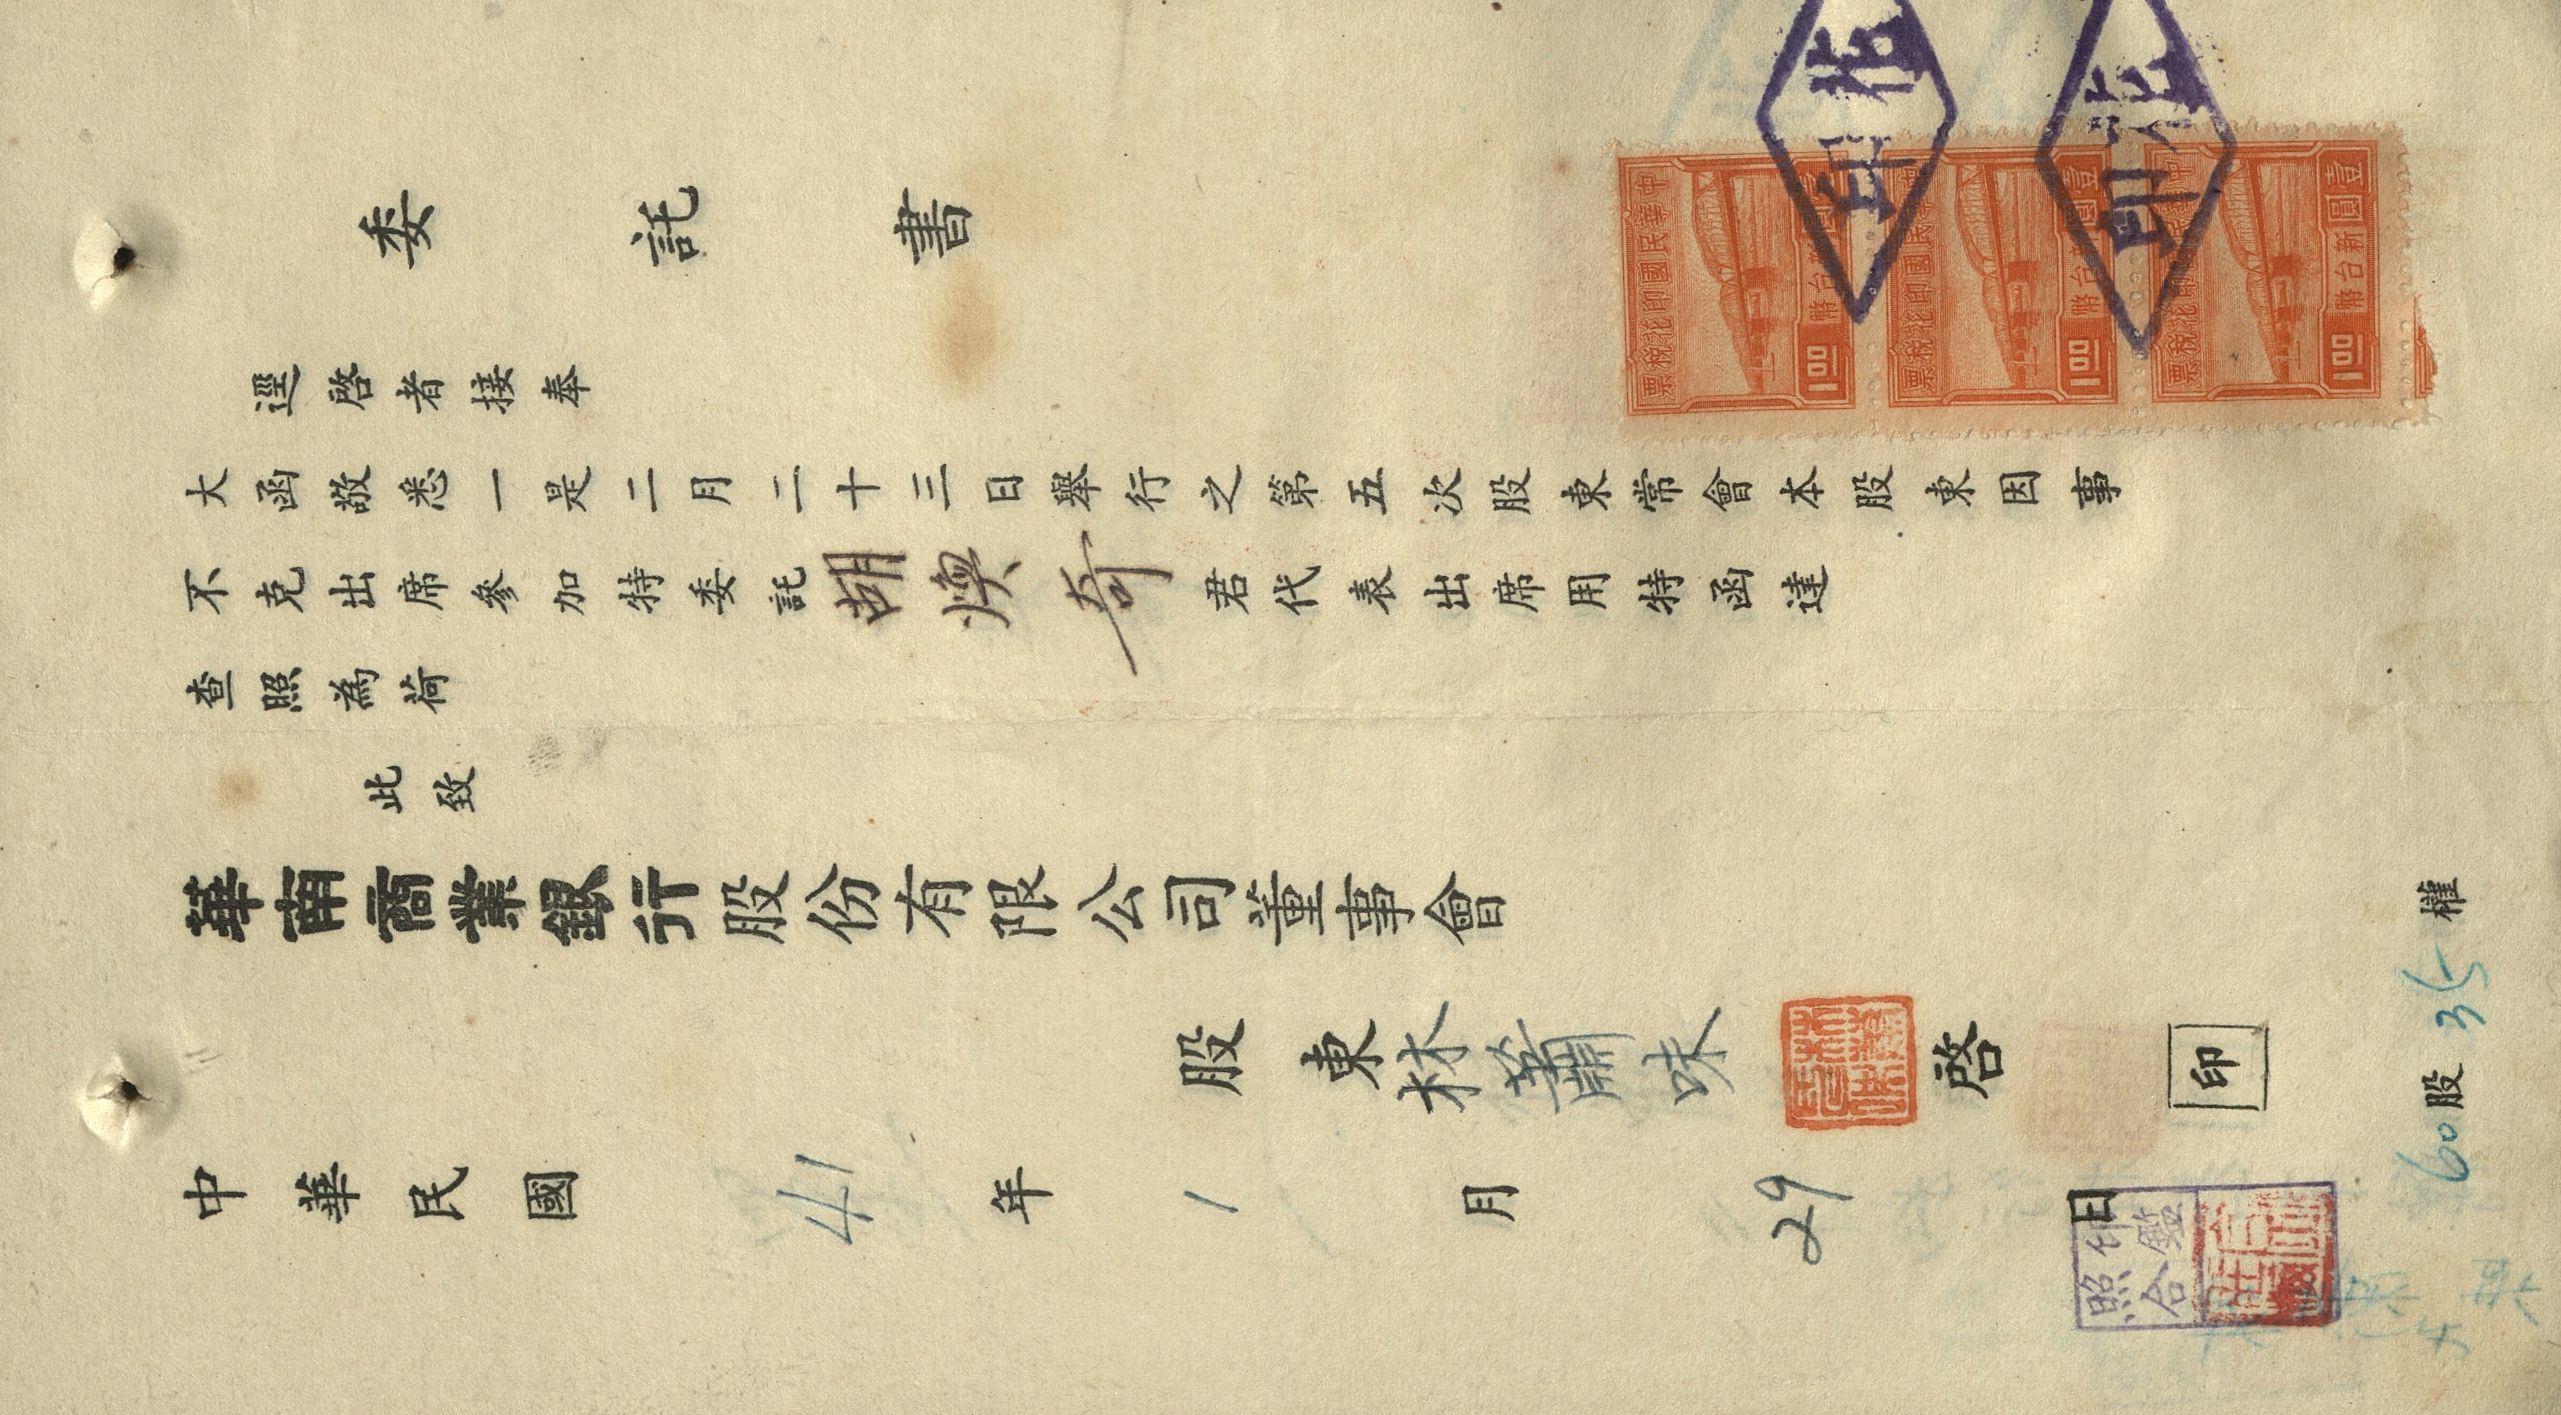 委託書
逕啓者接奉
大函敬悉一是二月二十三日舉行之第五次股東常會本股東因事
不克出席參加特委託胡煥奇君代表出席用特函達
查照為荷
此致
華南商業銀行股份有限公司董事會
股東林蕭味啓 印
中華民國41年1月29日
60股35權
中華民國印花稅票
壹圓新台幣
1.00
中華民國印花稅票
壹圓新台幣
1.00
中華民國印花稅票
壹圓新台幣
1.00
印鑑
照合